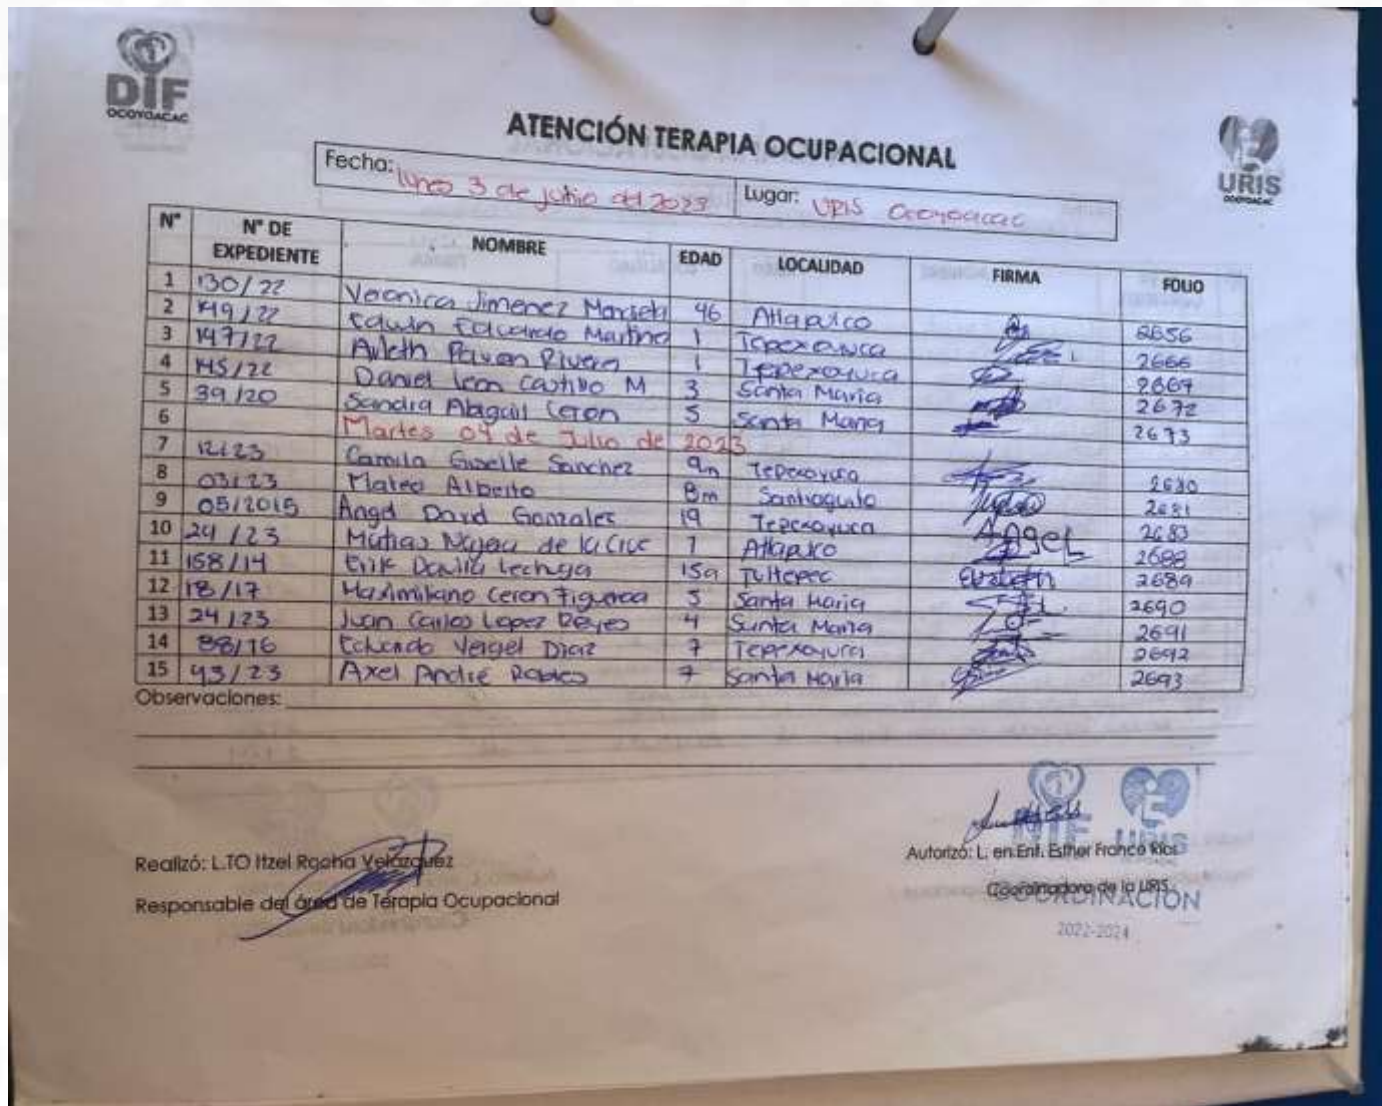 DIF
OCOYOACAC
URIS
OCOYOACAC
ATENCIÓN TERAPIA OCUPACIONAL
Fecha: lunes 3 de julio del 2023 Lugar: URIS Ocoyoacac
N° N° DE EXPEDIENTE NOMBRE EDAD LOCALIDAD FIRMA FOLIO
1 130/22 Veronica Jimenez 46 Atlapulco 2656
2 149/22 Edwin Eduardo Martine 1 Tepexoyuca 2666
3 147/22 Avleth Pavon Rivera 1 Tepexoyuca 2667
4 145/22 Daniel leon Castillo M 3 Santa Maria 2672
5 39/20 Sandra Abigail Ceron 5 Santa Maria 2673
6 Martes 04 de Julio de 2023
7 12/23 Camila Giselle Sanchez 9m Tepexoyuca 2680
8 03/23 Mateo Alberto 8m Santiaguito 2681
9 05/2015 Angel David Gonzales 19 Tepexoyuca Angel 2683
10 24/23 Matias Najera de la Cruz 7 Atlapulco 2688
11 158/14 Erik Davila Lechuga 15a Tultepec Elizabeth 2689
12 18/17 Maximiliano Ceron Figueroa 5 Santa Maria 2690
13 24/23 Juan Carlos Lopez Reyes 4 Santa Maria 2691
14 88/16 Eduardo Vergel Diaz 7 Tepexoyuca 2692
15 43/23 Axel André Robles 7 Santa Maria 2693
Observaciones:
DIF URIS
Realizó: L.TO Itzel Rocha Velázquez
Autorizó: L. en Enf. Esther Franco Rios
Responsable del área de Terapia Ocupacional
Coordinadora de la URIS
COORDINACIÓN
2022-2024